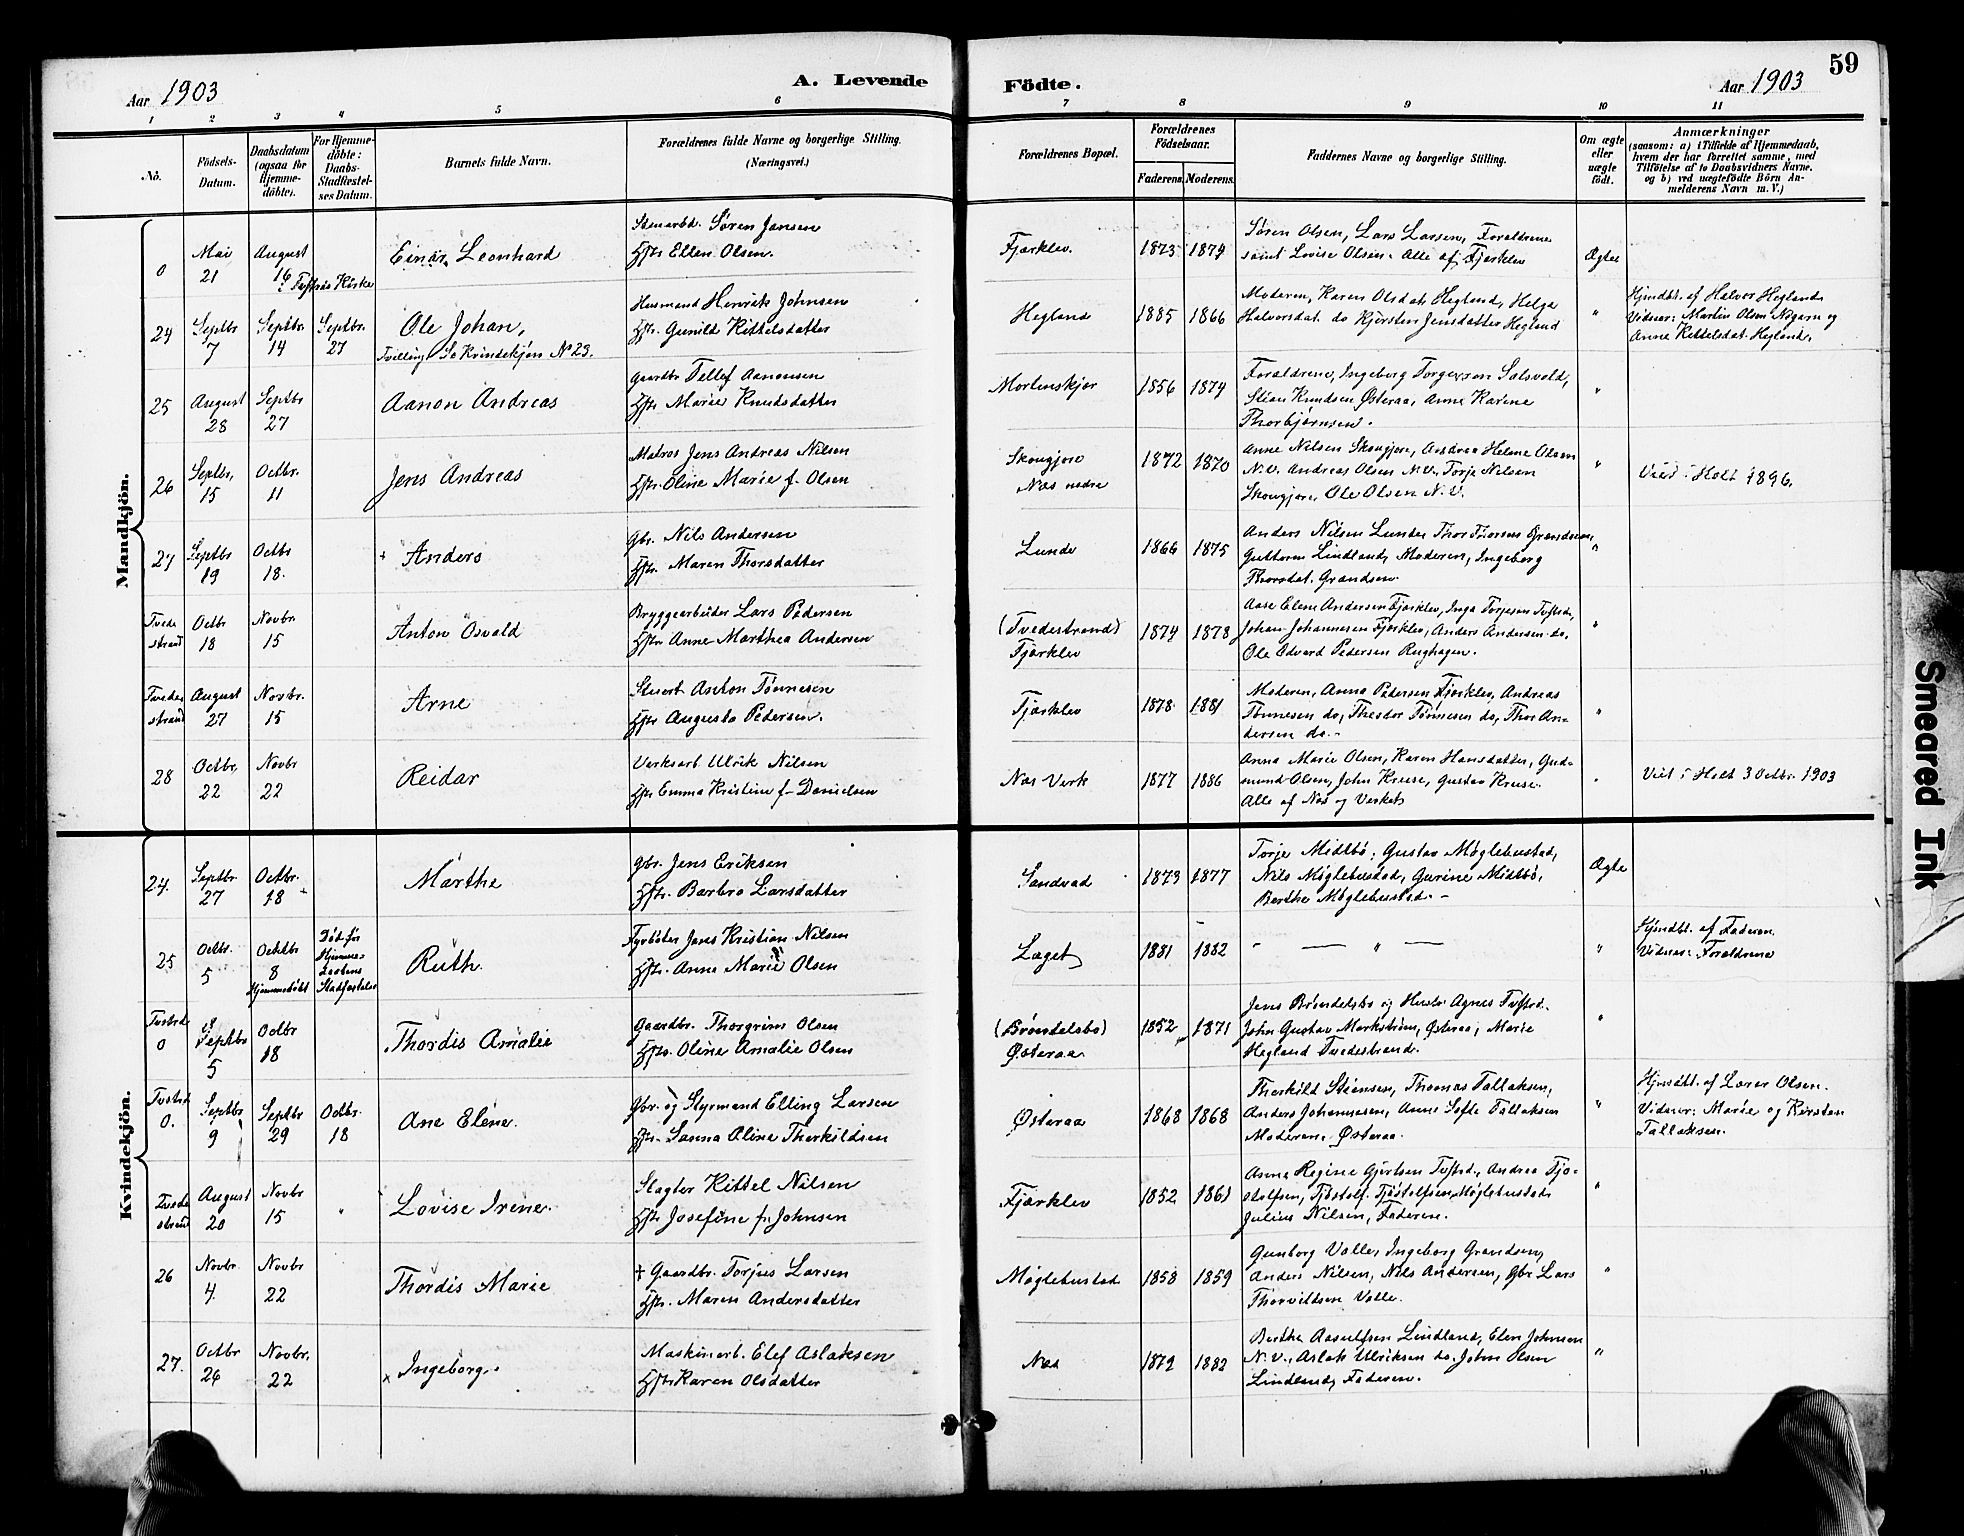 59
Aar 1903
A. Levende
Födte.
Aar 1903
1 2 3 4 5 6 7 8 9 10 11
No.
Födsels-Datum.
Daabsdatum (ogsaa for Hjemme-döbte).
For Hjemme-döbte: Daabs-Stadfæstel-ses Datum.
Barnets fulde Navn.
Forældrenes fulde Navne og borgerlige Stilling. (Næringsvei.)
Forældrenes Bopæl.
Forældrenes Födselsaar.
Faderens. Moderens.
Faddernes Navne og borgerlige Stilling.
Om ægte eller uægte födt.
Anmærkninger
(saasom: a) i Tilfælde af Hjemmedaab,
hvem der har forrettet samme, med
Tilföielse af to Daabsvidners Navne.
og b) ved uægtefödte Börn An-
melderens Navn m. V.)
Mandkjön.
0
Mai 21
August 16
Einar Leonhard
Sören Jensen
Hstr Ellen Olsen.
Fjærklev.
1873 1874
Søren Olsen, Lars Larsen, Forældrene
samt Lovise Olsen. Alle af Fjærklev
Ægte
24
Septbr 7
Septbr. 14
Septbr. 27
Ole Johan,
Tvilling, Se Kvindekjøn No 23.
Husmand Henrik Johnsen
Hstr. Gunild Kittelsdatter
Hegland
1885 1866
Moderen, Karen Olsdat. Hegland, Helga
Halvorsdat. do Kjersten Jensdatter Hegland
"
Hjmdbt. af Halvor Hegland
Vidner: Martin Olsen Nigarn og
Anne Kittelsdat. Hegland.
25
August 28
Septbr 27
Aanon Andreas
Gaardbr Tellef Aanonsen
Hstr Marie Knudsdatter
Mortenskjær
1856 1874
Forældrene, Ingeborg Torgersen Salsvold,
Stian Knudsen Østeraa, Anne Karine
Thorbjørnsen.
"
26
Septbr, 15
Octbr. 11
Jens Andreas
Matros Jens Andreas Nilsen
Hstr. Oline Marie f. Olsen
Skougjore
Næs nedre
1872 1870
Anne Nilsen Skougjore, Andrea Helene Olsen
N.V. Andreas Olsen N.V., Torje Nilsen
Skougjore, Ole Olsen N.V.
"
Viet i Holt 1896.
27
Septbr 19
Octbr 18.
Anders
Gbr. Nils Andersen
Hstr. Maren Thorsdatter
Lunde
1866 1875
Anders Nilsen Lunde, Thor Thorsens Grændsen,
Guttorm Lindland, Moderen, Ingeborg
Thorsdat. Grændsen.
"
Tvede strand
Octbr 18
Novbr. 15
Anton Osvald
Bryggearbeider Lars Pedersen
Hstr Anne Marthea Andersen
(Tvedestrand)
Fjærklev
1874 1878
Aase Elene Andersen Fjærklev, Inga Torjesen Tvstrd,
Johan Johannesen Fjærklev, Anders Andersen do.
Ole Edvard Pedersen Rughagen.
"
Tvede strand
August 27
Novbr. 15
Arne
Stuert Anton Tønnesen
Hstr Augusta Pedersen.
Fjærklev
1878 1881
Moderen, Anna Pedersen Fjærklev, Andreas
Tønnesen do, Theodor Tønnesen do, Thor An-
dersen do.-
"
28
Octbr. 22
Novbr 22
Reidar
Verksarb Ulrik Nilsen
Hstr Emma Kristine f. Danielsen
Næs Verk
1877 1886
Anna Marie Olsen, Karen Hansdatter, Gud-
mund Olsen, John Kruse, Gustav Kruse.
Alle af Næs og Verket
"
Viet i Holt 3 Octbr. 1903
Kvindekjön.
24.
Septbr 27
Octbr. 18
Marthe
Gbr. Jens Eriksen
Hstr. Barbro Larsdatter
Sandvad
1873 1877
Torje Midtbö, Gustav Møglebustad,
Nils Møglebustad, Gurine Midtbö,
Berthe Møglebustad. -
Ægte
25
Octbr. 5
Octbr 8 Hjemmedöbt
Död før Hjemme-daabens Stadfæstelse
Ruth.
Fyrböter Jens Kristian Nilsen
Hstr. Anne Marie Olsen
Laget
1881 1882
- — " —
"
Hjmdbt. af Faderen.
Vidner: Forældrene
Tvstrd 0
Septbr 5
Octbr 18
Thordis Amalie
Gaardbr. Thorgrim Olsen
Hstr. Oline Amalie Olsen
(Bröndelsbo)
Østeraa
1852 1871
Jens Bröndelsbo og Hustr Agnes Tvstrd.
John Gustav Markström, Østeraa, Marie
Hegland Tvedestrand.
"
Tvstrd 0.
Septbr 9
Septbr 29
Octbr. 18
Ane Elene.
Gbr. og Styrmand Elling Larsen
Hstr. Sanna Oline Therkildsen
Østeraa
1868 1868
Therkild Stiansen, Thomas Tallaksen,
Anders Johannesen, Anne Sofie Tallaksen
Moderen. Østeraa.
"
Hjmdbt. af Laver Olsen.
Vidner: Marie og Kirsten
Tallaksen.
Tvede strand
August 20
Novbr 15
"
Lovise Irene.
Slagter Kittel Nilsen
Hstr Josefine f. Johnsen
Fjærklev
1852 1861
Anna Regine Gjertsen Tvstrd., Andrea Tjo-
stolfsen, Tjöstolf Tjöstolfsen Møglebustad,
Julius Nilsen, Faderen.
"
26
Novbr. 4.
Novbr 22
Thordis Marie
+ Gaardbr. Torjus Larsen
Hstr. Maren Andersdatter
Møglebustad
1858 1859
Gunborg Valle, Ingeborg Grandsen,
Anders Nilsen, Nils Andersen, Gbr Lars
Thorvildsen Valle.
"
27.
Octbr 26
Novbr. 22
Ingeborg.
Maskinarb. Elef Aslaksen
Hstr Karen Olsdatter
Næs
1879 1882
Berthe Aasulfsen Lindland, Elen Johnsen
N.V., Aslak Ulriksen do. John Olsen
Lindland, Faderen.
"
Smeared Ink